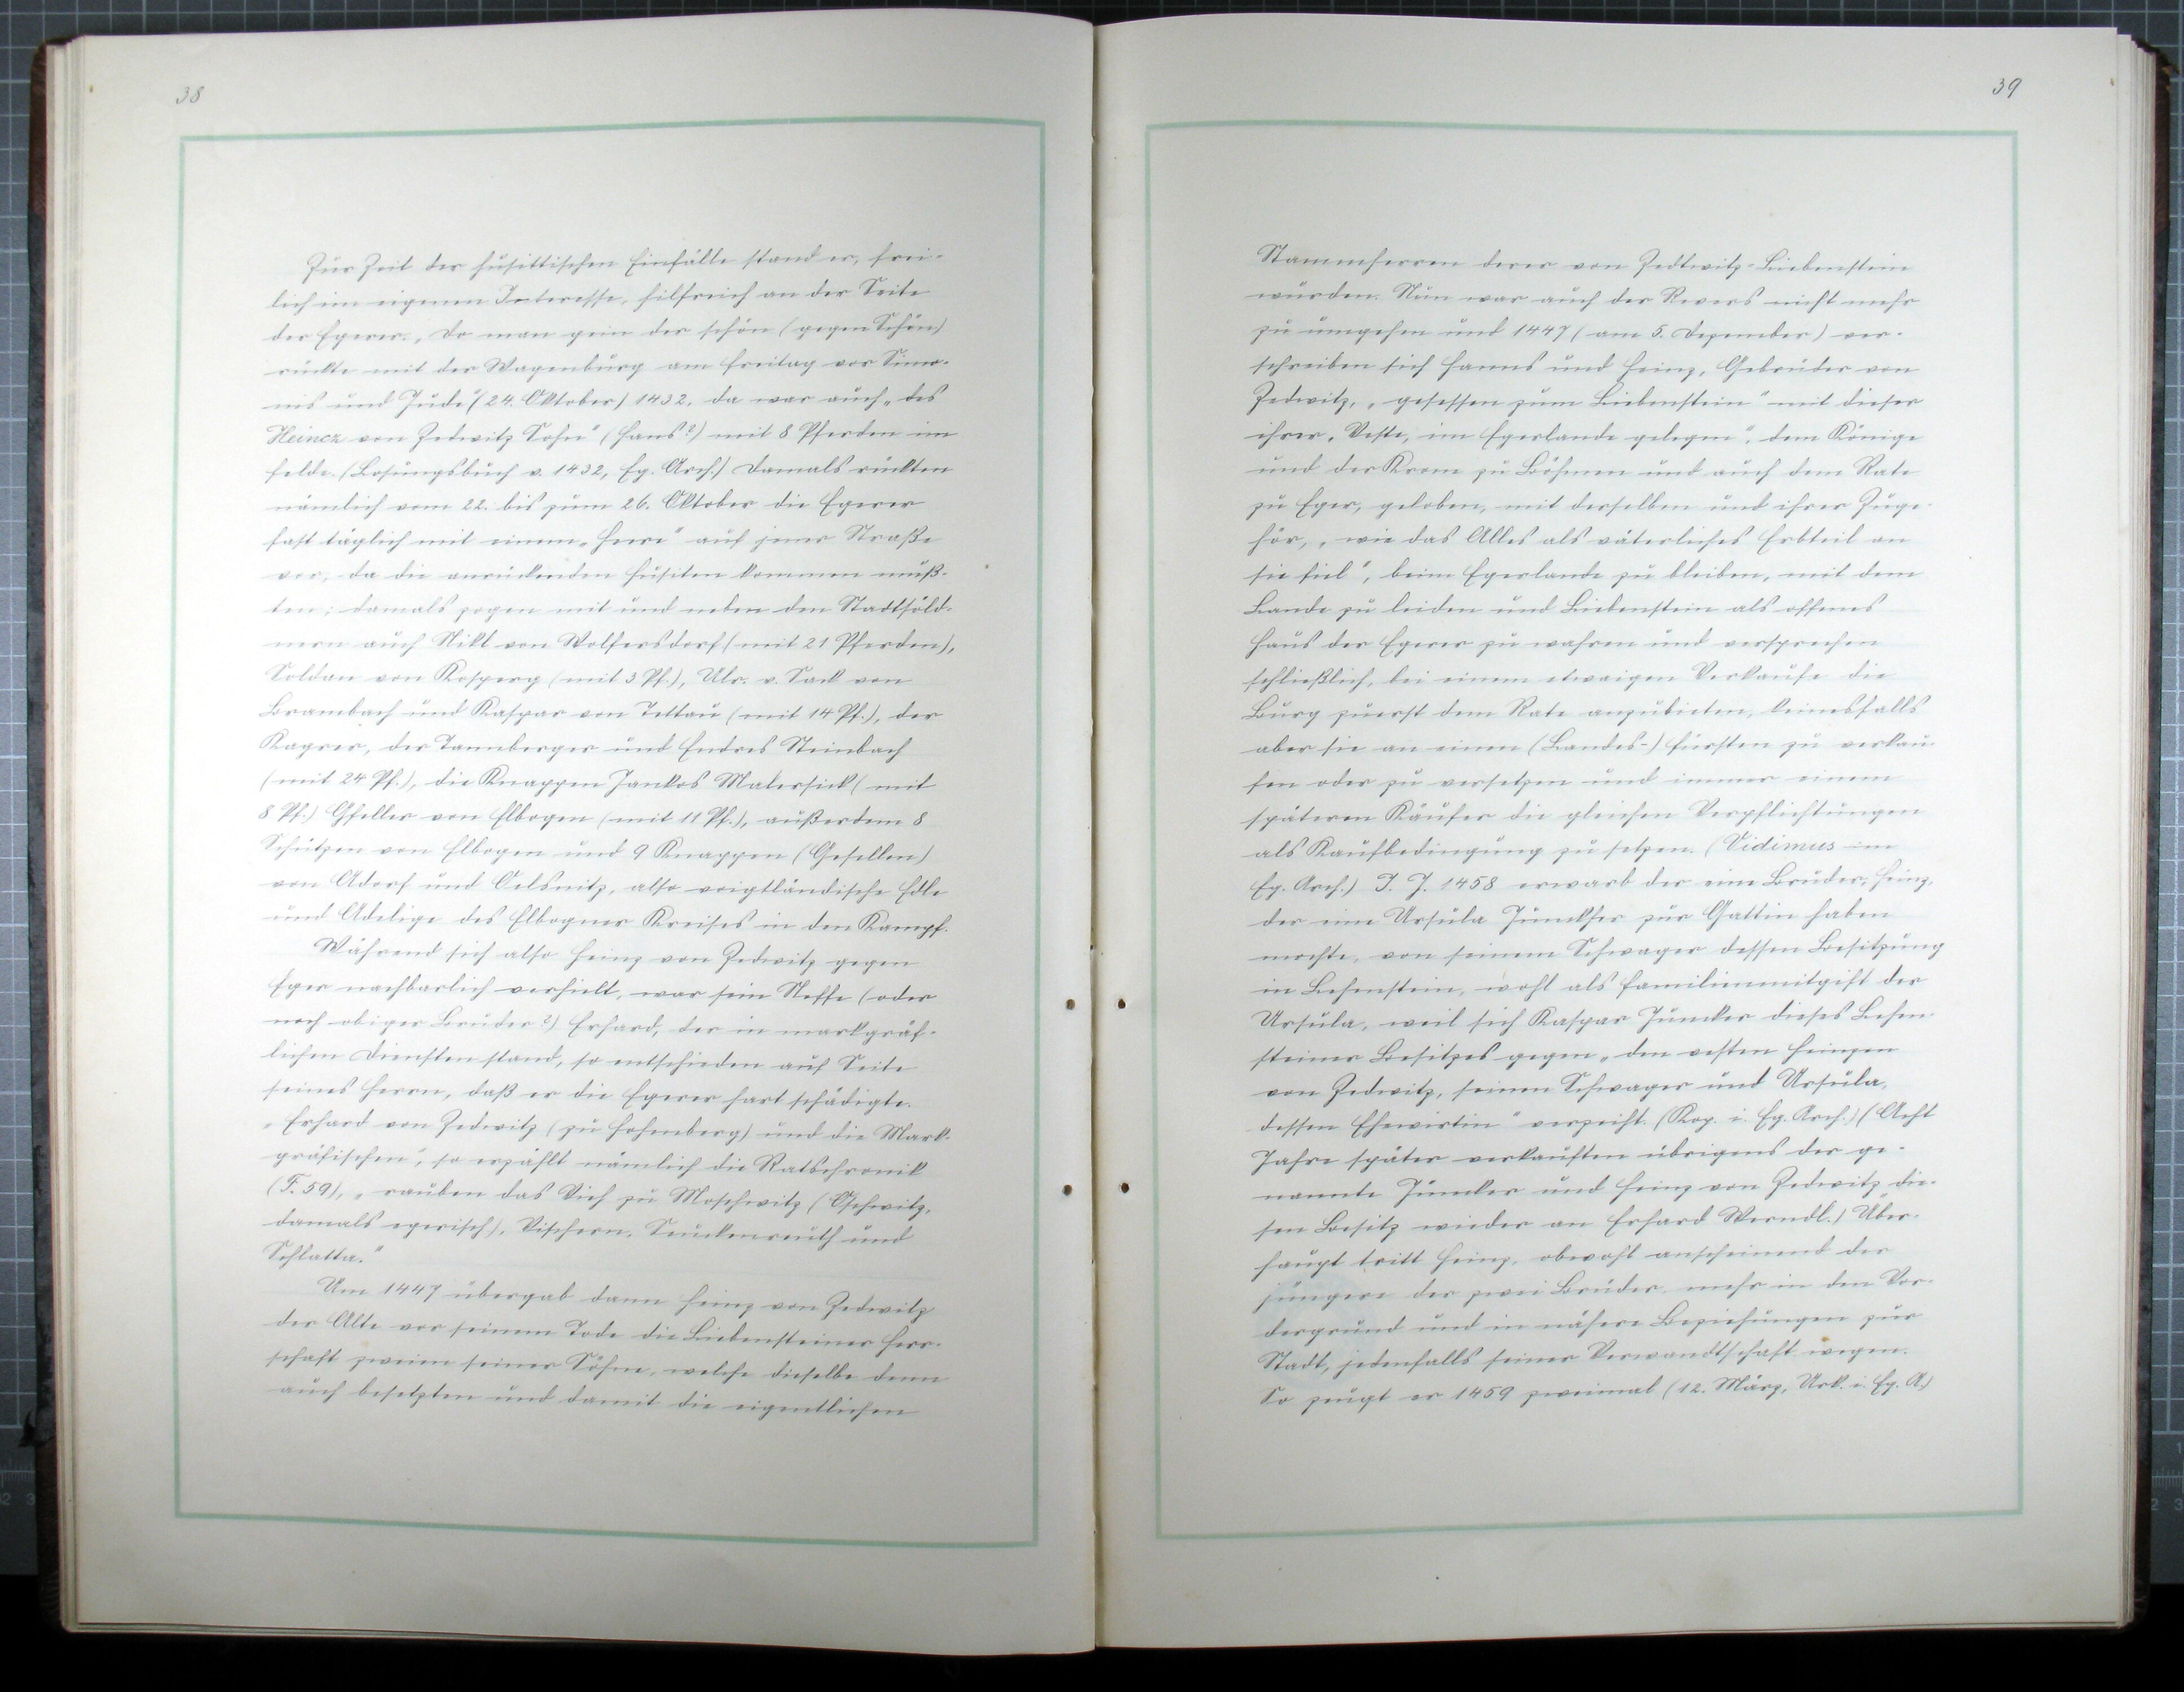 38
Zur Zeit der husittischen Einfälle stand er, frei-
lich im eigenen Interesse, hilfreich an der Seite
der Egerer. „Do man gein der schön (gegen Schön)
rückte mit der Wagenburg am Freitag vor Simo-
nis und Jude“ (24. Oktober) 1432, da war auch „des
Heincz von Zedwitz Sohn“ (Hans?) mit 8 Pferden im
Felde. (Losungsbuch v. 1432, Eg. Arch.) Damals rückten
nämlich vom 22. bis zum 26. Oktober die Egerer
fast täglich mit einem „Heere“ auf jener Straße
vor, da die anrückenden Husiten kommen muß-
ten; damals zogen mit und neben den Stadtsöld-
nern auch Nikl von Wolfersdorf (mit 21 Pferden),
Soldan von Kosperg (mit 3 Pf.), Ulr. v. Sack von
Brambach und Kaspar von Tettau (mit 14 Pf.), der
Kagrer, der Tannberger und Endres Steinbach
(mit 24 Pf.), die Knappen Jankos Matersick (mit
8 Pf.) Gfeller von Elbogen (mit 11 Pf.), außerdem 8
Schützen von Elbogen und 9 Knappen (Gesellen)
von Adorf und Oelsnitz, also voigtländische Edle
und Adelige des Elbogner Kreises in den Kampf.
Während sich also Heinz von Zedwitz gegen
Eger nachbarlich verhielt, war sein Neffe (oder
noch obiger Bruder?) Erhard, der in markgräf-
lichen Diensten stand, so entschieden auf Seite
seines Herrn, daß er die Egerer hart schädigte.
„Erhard von Zedwitz (zu Hohenberg) und die Mark-
gräfischen“, so erzählt nämlich die Ratschronik
(F. 59), „rauben das Vieh zu Moschwitz (Oschwitz,
damals egerisch), Vischern, Seuckenreuth und
Schlatta.“
Um 1447 übergab dann Heinz von Zedwitz
der Alte vor seinem Tode die Liebensteiner Herr-
schaft zweien seiner Söhne, welche dieselbe denn
auch besetzten und damit die eigentlichen
39
Stammherren derer von Zedtwitz-Liebenstein
wurden. Nun war auch der Revers nicht mehr
zu umgehen und 1447 (am 5. Dezember) ver-
schreiben sich Hanns und Heinz, Gebrüder von
Zedwitz, „gesessen zum Liebenstein“ mit dieser
ihrer „Veste, im Egerlande gelegen“, dem Könige
und der Krone zu Böhmen und auch dem Rate
zu Eger, geloben, mit derselben und ihrer Zuge-
hör, „wie das Alles als väterliches Erbteil an
sie fiel“, beim Egerlande zu bleiben, mit dem
Lande zu leiden und Liebenstein als offenes
Haus der Egerer zu wahren und versprechen
schließlich, bei einem etwaigen Verkaufe die
Burg zuerst dem Rate anzubieten, keinesfalls
aber sie an einen (Landes-) fürsten zu verkau-
fen oder zu versetzen und immer einem
späteren Käufer die gleichen Verpflichtungen
als Kaufbedingung zu setzen. (Vidimus im
Eg. Arch.) I. J. 1458 erwarb der eine Bruder, Heinz,
der eine Ursula Junckher zur Gattin haben
mochte, von seinem Schwager dessen Besitzung
in Lehenstein, wohl als Familienmitgift der
Ursula, weil sich Kaspar Juncker dieses Lehen-
steiner Besitzes gegen „den vesten Heinzen
von Zedwitz, seinen Schwager und Ursula,
dessen Ehewirtin“ verzeiht. (Kop. i. Eg. Arch.) (Acht
Jahre später verkauften übrigens der ge-
nannte Juncker und Heinz von Zedwitz die-
sen Besitz wieder an Erhard Werndl.) Über-
haupt tritt Heinz, obwohl anscheinend der
jüngere der zwei Brüder, mehr in den Vor-
dergrund und in nähere Beziehungen zur
Stadt, jedenfalls seiner Verwandtschaft wegen.
So zeugt er 1459 zweimal (12. März, Urk. i. Eg. A.)